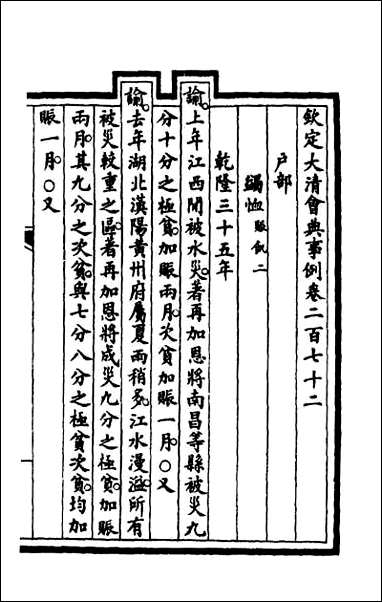 欽定大清會典事例卷二百七十二
戶部
蠲恤賑飢二
乾隆三十五年
諭上年江西閒被水災著再加恩將南昌等縣被災九
分十分之極貧加賑兩月次貧加賑一月○又
諭去年湖北漢陽黃州府屬夏雨稍多江水漫溢所有
被災較重之區著再加恩將成災九分之極貧加賑
兩月其九分之次貧與七分八分之極貧次貧均加
賑一月○又